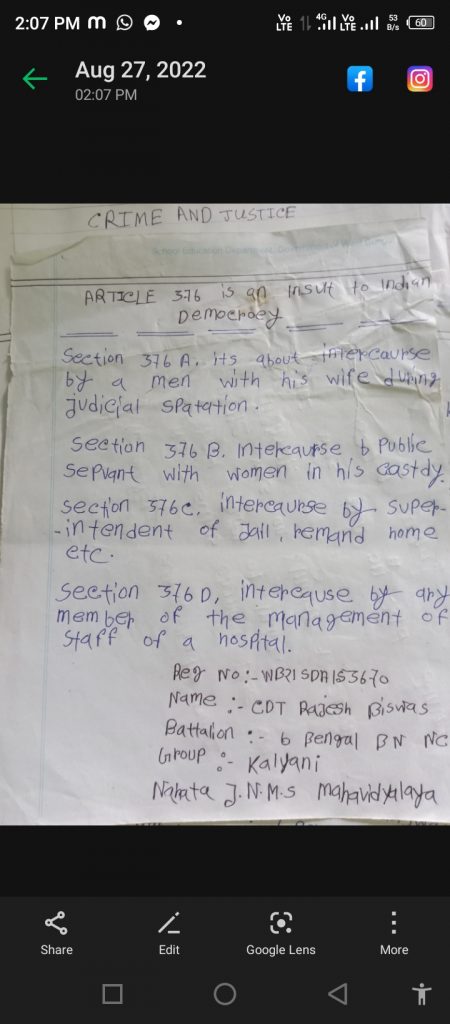 2:07 PM m
Vo LTE 4G Vo LTE 53 B/s 60
Aug 27, 2022
02:07 PM
CRIME AND JUSTICE
School Education Department, Government of West Bengal
ARTICLE 376 is an insult to Indian
Democracy
Section 376 A. its about intercaurse
by a men with his wife during
judicial spatation.
Section 376 B. Intercaurse b Public
servant with women in his castdy.
section 376c. intercaurse by super-
-intendent of Jail, remand home
etc.
section 376 D, intercause by any
member of the management of
staff of a hospital.
Reg No:- WB21SDA153670
Name :- CDT Rajesh Biswas
Battalion :- 6 Bengal BN NC
Group :- Kalyani
Nahata J.N.M.S Mahavidyalaya
Share
Edit
Google Lens
More